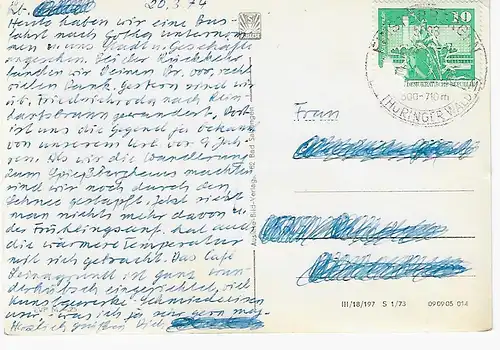 20.3.74
Heute haben wir eine Bus-
fahrt nach Gotha unternom-
men u. uns Stadt u. Geschäfte
angesehen. Bei der Rückkehr
fanden wir Deinen Br. vor, recht
vielen Dank. Gestern sind wir
üb. Friedrichroda nach Rein-
hardsbrunn gewandert. Dort
ist uns die Gegend ja bekannt
von unserem Url. vor 9 Jah-
ren. Als wir die Wanderung
zum Spießberghaus machten
sind wir noch durch den
Schnee gestapft. Jetzt sieht
man nichts mehr davon u.
der Frühlingsanf. hat auch
die wärmere Temperatur
mit sich gebracht. Das Café
ist ganz wun-
derhübsch eingerichtet, viel
Kunstgewerbe - Schmiedeeisen
usw., was ich ja sehr gern mag.
Herzlich grüßen Dich
Frau
10
DEUTSCHE DEMOKRATISCHE REPUBLIK
500-710 m
THÜRINGER WALD
III/18/197 S 1/73 09 09 05 014